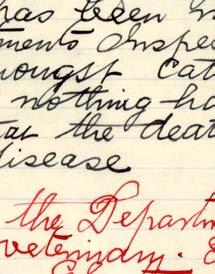 has been
ments Inspec
mongst Catt
nothing ha
the deat
disease
the Departm
veterinary.